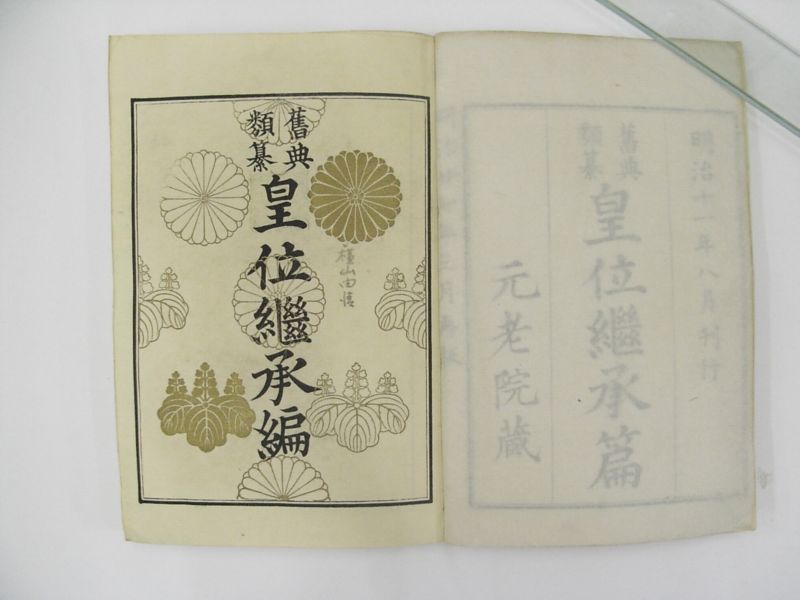 舊典
類纂
皇位繼承編
明治十一年八月刊行
舊典
類纂
皇位繼承篇
元老院蔵